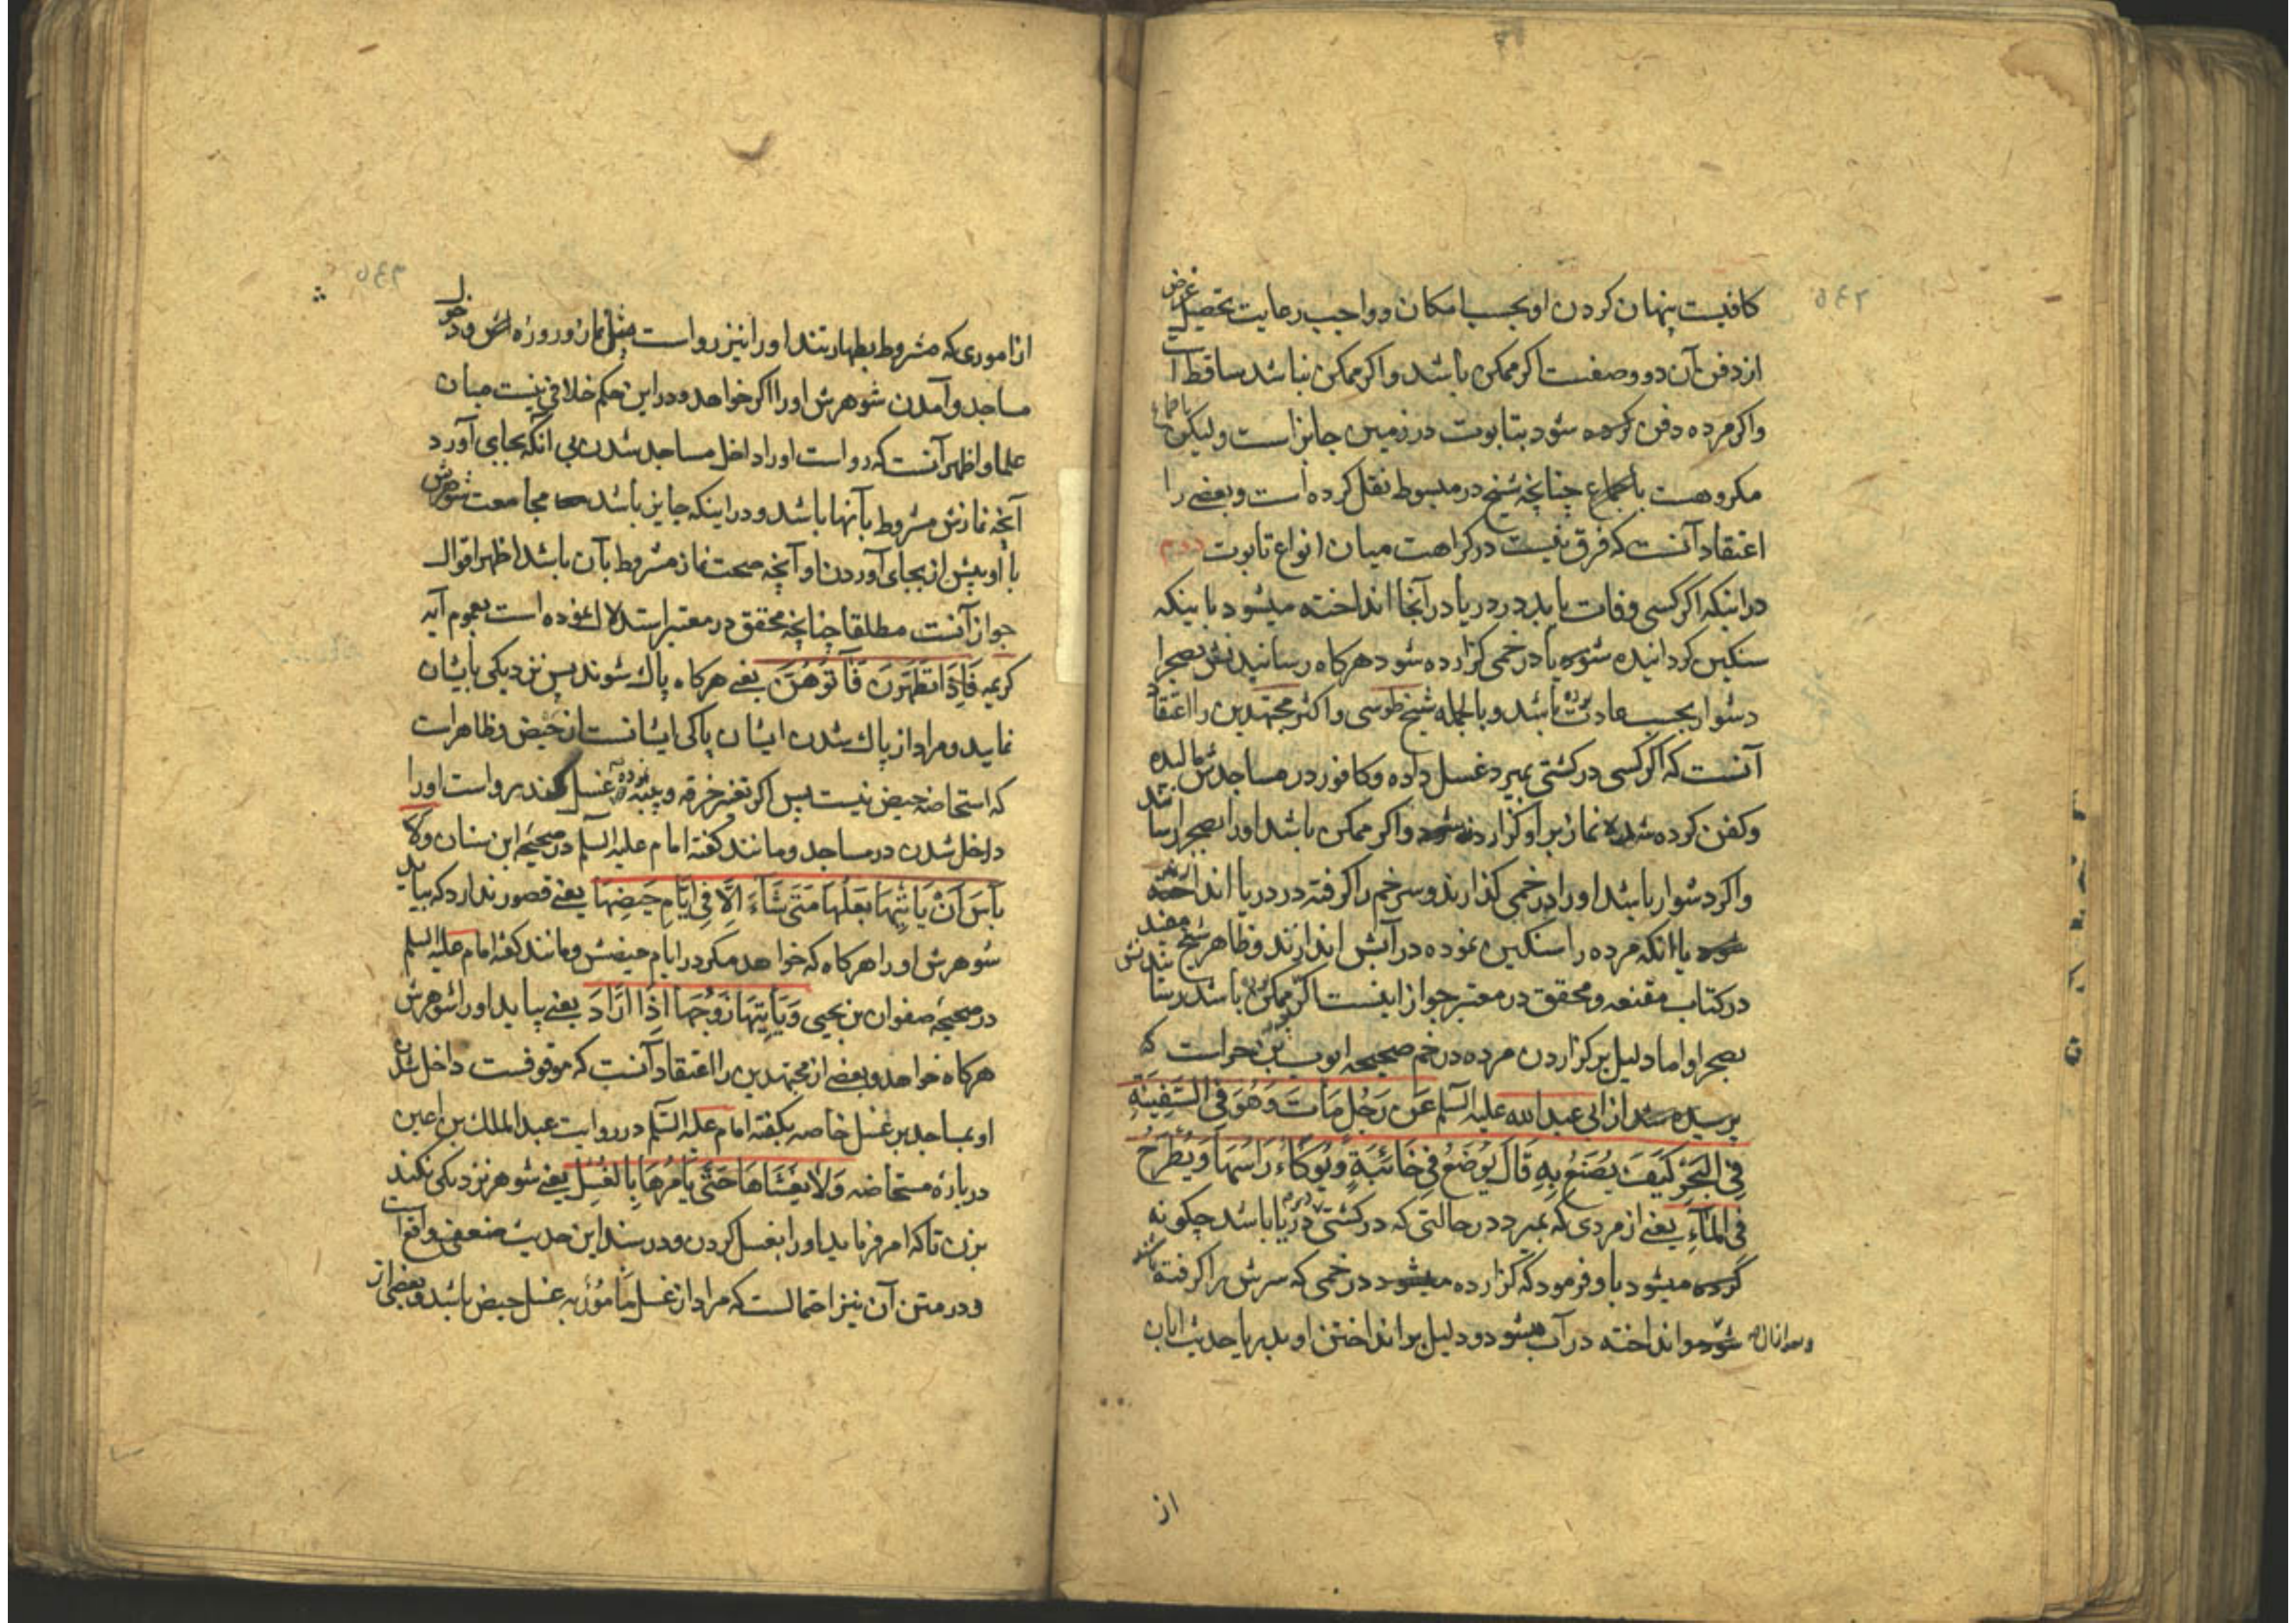 کافیست پنهان کردن او بحسب امکان و واجب رعایت تحصیل غرض
از دفن آن دو وصفست اگر ممکن باشد و اکر ممکن نباشد ساقط است
واکر مرده دفن کرده شود بتابوت در زمین جایز است ولیکن
مکروهست باجماع چنانچه شیخ در مبسوط نقل کرده است و بعضی را
اعتقاد آنست که فرق نیست در کراهت میان انواع تابوت دوم
در اینکه اکر کسی وفات یابد در دریا در آنجا انداخته میشود باینکه
سنکین کردانیده شود یا در خمی کزارده شود هرکاه رسانیدنش بصحرا
دشوار بحسب عادت بوده باشد و بالجمله شیخ طوسی و اکثر مجتهدین را اعتقاد
آنست که اکر کسی در کشتی بمیرد غسل داده و کافور در مساجدش مالیده
و کفن کرده شده نماز بر او کزارده شود و اکر ممکن باشد او را بصحرا رسانند
واکر دشوار باشد او را در خمی کذارند و سر خم را کرفته در دریا اندازند
شود یا انکه مرده را سنکین نموده در آبش اندازند و ظاهر شیخ مفید
در کتاب مقنعه و محقق در معتبر جواز اینست اکر ممکن نبوده باشد رسانیدنش
بصحرا و اما دلیل بر کزاردن مرده در خم صحیحه ایوب بن حر است که
پرسیده شد از ابی عبد الله علیه السلم عَن رَجُلٍ مَاتَ وَهُوَ فِی السَّفِینَةِ
فِی البَحْرِ کَیْفَ یُصْنَعُ بِهِ قَالَ یُوضَعُ فِی خَابِیَةٍ وَیُوکَاءُ رَاسُهَا وَیُطْرَحُ
فی المَآءِ یعنے از مردی که بمیرد در حالتی که در کشتی در دریا باشد چکونه
کرده میشود باو فرمود که کزارده میشود در خمی که سرش را کرفته باشند
شود و انداخته در آب میشود و دلیل بر انداختن او بدریا حدیث ابان
از
از اموری که مشروط بطهارتند او را نیز رواست مثل نماز و روزه اش و دخول
مساجد و آمدن شوهرش او را اکر خواهد و در این حکم خلافی نیست میان
علما و اظهر آنست که رواست او را داخل مساجد شدن بی آنکه بجای آورد
آنچه نمازش مشروط بآنها باشد و در اینکه جایز باشد مجامعت شوهرش
با او پیش از بجای آوردن او آنچه صحت نماز مشروط بآن باشد اظهر اقوال
جواز آنست مطلقا چنانچه محقق در معتبر استدلال نموده است بعموم آیه
کریمه فَاِذَا تَطَهَّرْنَ فَأتُوهُنَّ یعنے هرکاه پاک شوند پس نزدیکی بایشان
نمایید و مراد از پاک شدن ایشان پاکی ایشانست از حیض و ظاهر است
که استحاضه حیض نیست پس اکر تغیر خرقه و پنبه نموده غسل نکند رواست او را
داخل شدن در مساجد و مانند کفته امام علیه السلم در صحیحه ابن سنان ولا
بَأسَ اَنْ یَاتِیَهَا بَعْلُهَا مَتَی شَآءَ اِلَّا فِی اَیَّامِ حَیْضِهَا یعنے قصور ندارد که بیاید
شوهرش او را هرکاه که خواهد مکر در ایام حیضش و مانند کفته امام علیه السلم
در صحیحه صفوان بن یحیی وَیَأتِیهَا زَوْجُهَا اِذَا اَرَادَ یعنے بیاید او را شوهرش
هرکاه خواهد و بعضے از مجتهدین را اعتقاد آنست که موقوفست داخل شدن
او بمساجد بر غسل خاصه بکفته امام علیه السلم در روایت عبد الملک بن اعین
در باره مستحاضه وَلا یَغْشَاهَا حَتَّی یَأمُرَهَا بِالغُسْلِ یعنے شوهر نزدیکی نکند
بزن تا که امر فرماید او را بغسل کردن و در سند این حدیث ضعفی واقع است
و در متن آن نیز احتمالست که مراد از غسل مَامُوُر به غسل حیض باشد و بعضی از